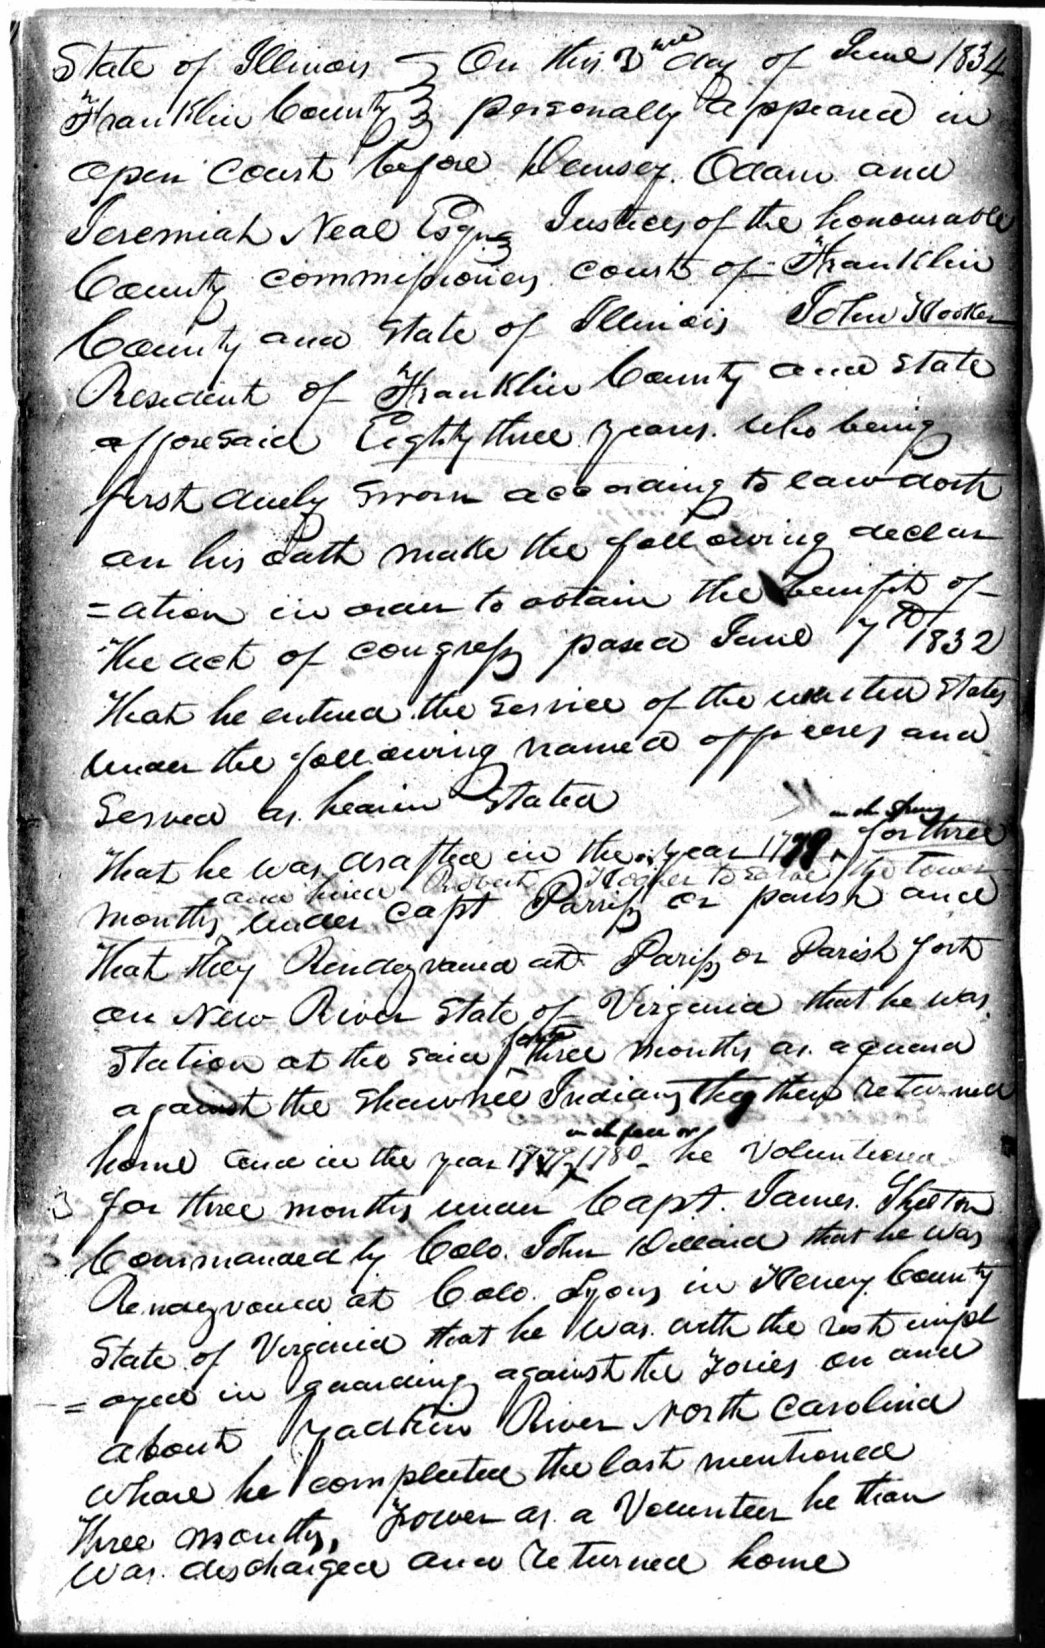 State of Illinois } On this 3rd day of June 1834
Franklin County } personally appeared in
open Court before Demsey Odam and
Jeremiah Neal Esqrs Justices of the honourable
County commissioners court of Franklin
County and State of Illinois John Hooker
Resident of Franklin County and State
afforesaid Eighty three years. who being
first duely sworn according to law doth
on his oath make the following declar
=ation in order to obtain the benifit of
the act of congress pased June 7th 1832
that he entered the service of the united States
under the following named officers and
Served as hearin Stated
in the Spring
that he was drafted in the year 1779 for three
and hired Robert Hooker to serve the tower
months under Capt Parris or parish and
that they Rendezvaued at Pariss or Parish fort
on New River State of Virginia that he was
Station at the said forte three months as a guard
against the Shawnee Indians they then returned
in the fall or
home and in the year 1779 / 1780 he Voluntiered
for three months under Capt. James Shelton
Commanded by Colo. John Dillard that he was
Rendezvoued at Colo. Lyons in Henry County
State of Virginia that he was with the rest impl
=oyed in guarding against the Tories on and
about Yadkin River North Carolina
whare he completed the last mentioned
three months, Tower as a Volunteer he than
was discharged and returned home